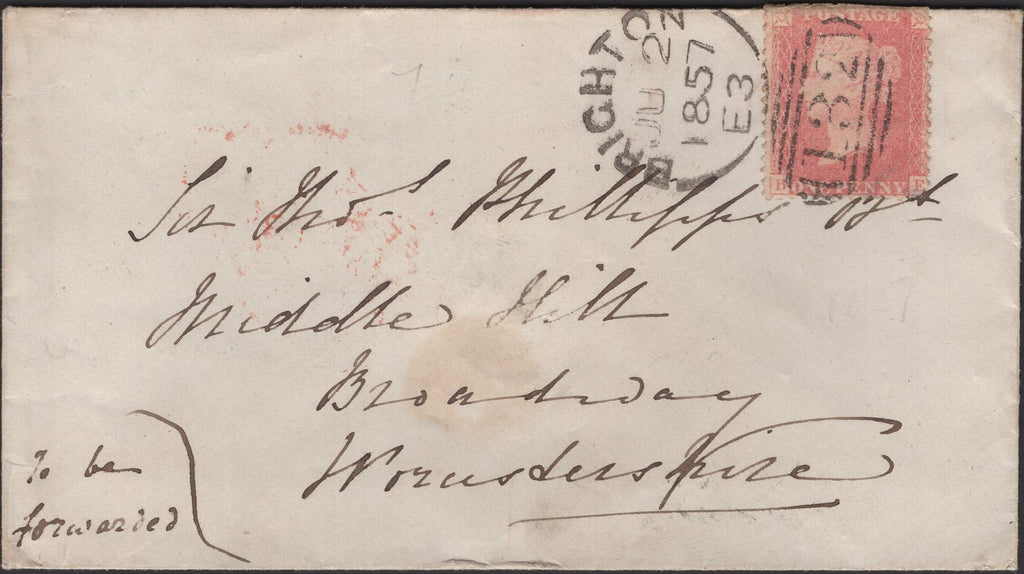 BRIGHTO
JU 22
1857
E3
POSTAGE
132
ONE PENNY
Sir Thos Phillipps Bt
Middle Hill
Broadway
Worcestershire
To be
forwarded